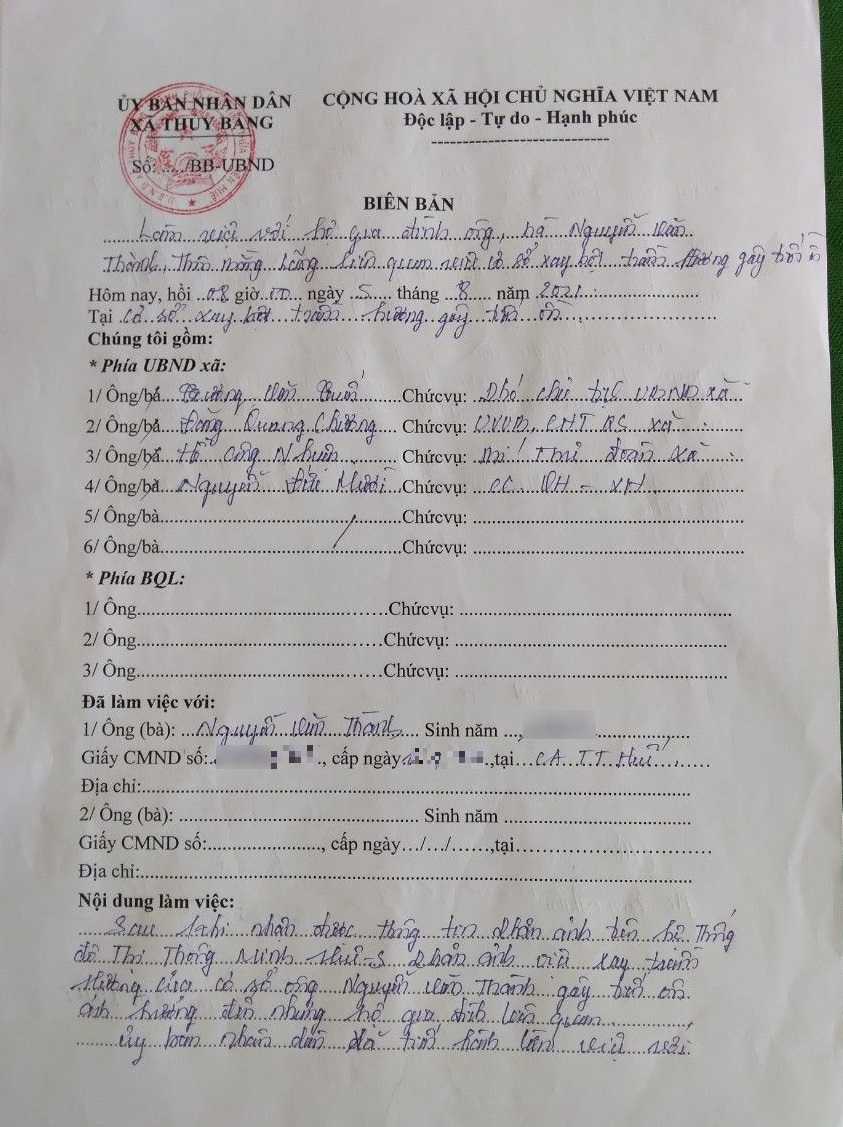 ỦY BAN NHÂN DÂN
XÃ THỦY BẰNG
Số: ..../BB-UBND
CỘNG HOÀ XÃ HỘI CHỦ NGHĨA VIỆT NAM
Độc lập - Tự do - Hạnh phúc
BIÊN BẢN
Làm việc với hộ gia đình ông, bà Nguyễn Văn
Thành, Thôn Bằng Lãng liên quan việc cơ sở xay bột trầm hương gây tiếng ồn
Hôm nay, hồi 08 giờ 00 ngày 5 tháng 8 năm 2021
Tại cơ sở xay bột trầm hương gây tiếng ồn
Chúng tôi gồm:
* Phía UBND xã:
1/ Ông/bà Văn Chứcvụ: Phó chủ tịch UBND xã
2/ Ông/bà Đặng Quang Chương Chứcvụ: UVUB, CHT QS xã
3/ Ông/bà Hồ Công Chứcvụ: Bí Thư đoàn xã
4/ Ông/bà Nguyễn Đức Mười Chứcvụ: CC VH - XH
5/ Ông/bà Chứcvụ:
6/ Ông/bà Chứcvụ:
* Phía BQL:
1/ Ông Chứcvụ:
2/ Ông Chứcvụ:
3/ Ông Chứcvụ:
Đã làm việc với:
1/ Ông (bà): Nguyễn Văn Thành Sinh năm
Giấy CMND số: , cấp ngày ,tại C.A.T.T.Huế
Địa chỉ:
2/ Ông (bà): Sinh năm
Giấy CMND số: , cấp ngày…/…/……,tại
Địa chỉ:
Nội dung làm việc:
Sau khi nhận được thông tin phản ảnh trên hệ thống
đô Thị Thông Minh Huế-S phản ảnh việc xay trầm
Hương của cơ sở ông Nguyễn Văn Thành gây tiếng ồn
ảnh hưởng đến những hộ gia đình liên quan
Ủy ban nhân dân xã tiến hành làm việc với